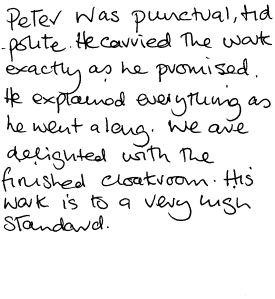 Peter was punctual, tid
polite. He carried the work
exactly as he promised.
He explained everything as
he went along. We are
delighted with the
finished cloakroom. His
work is to a very high
standard.